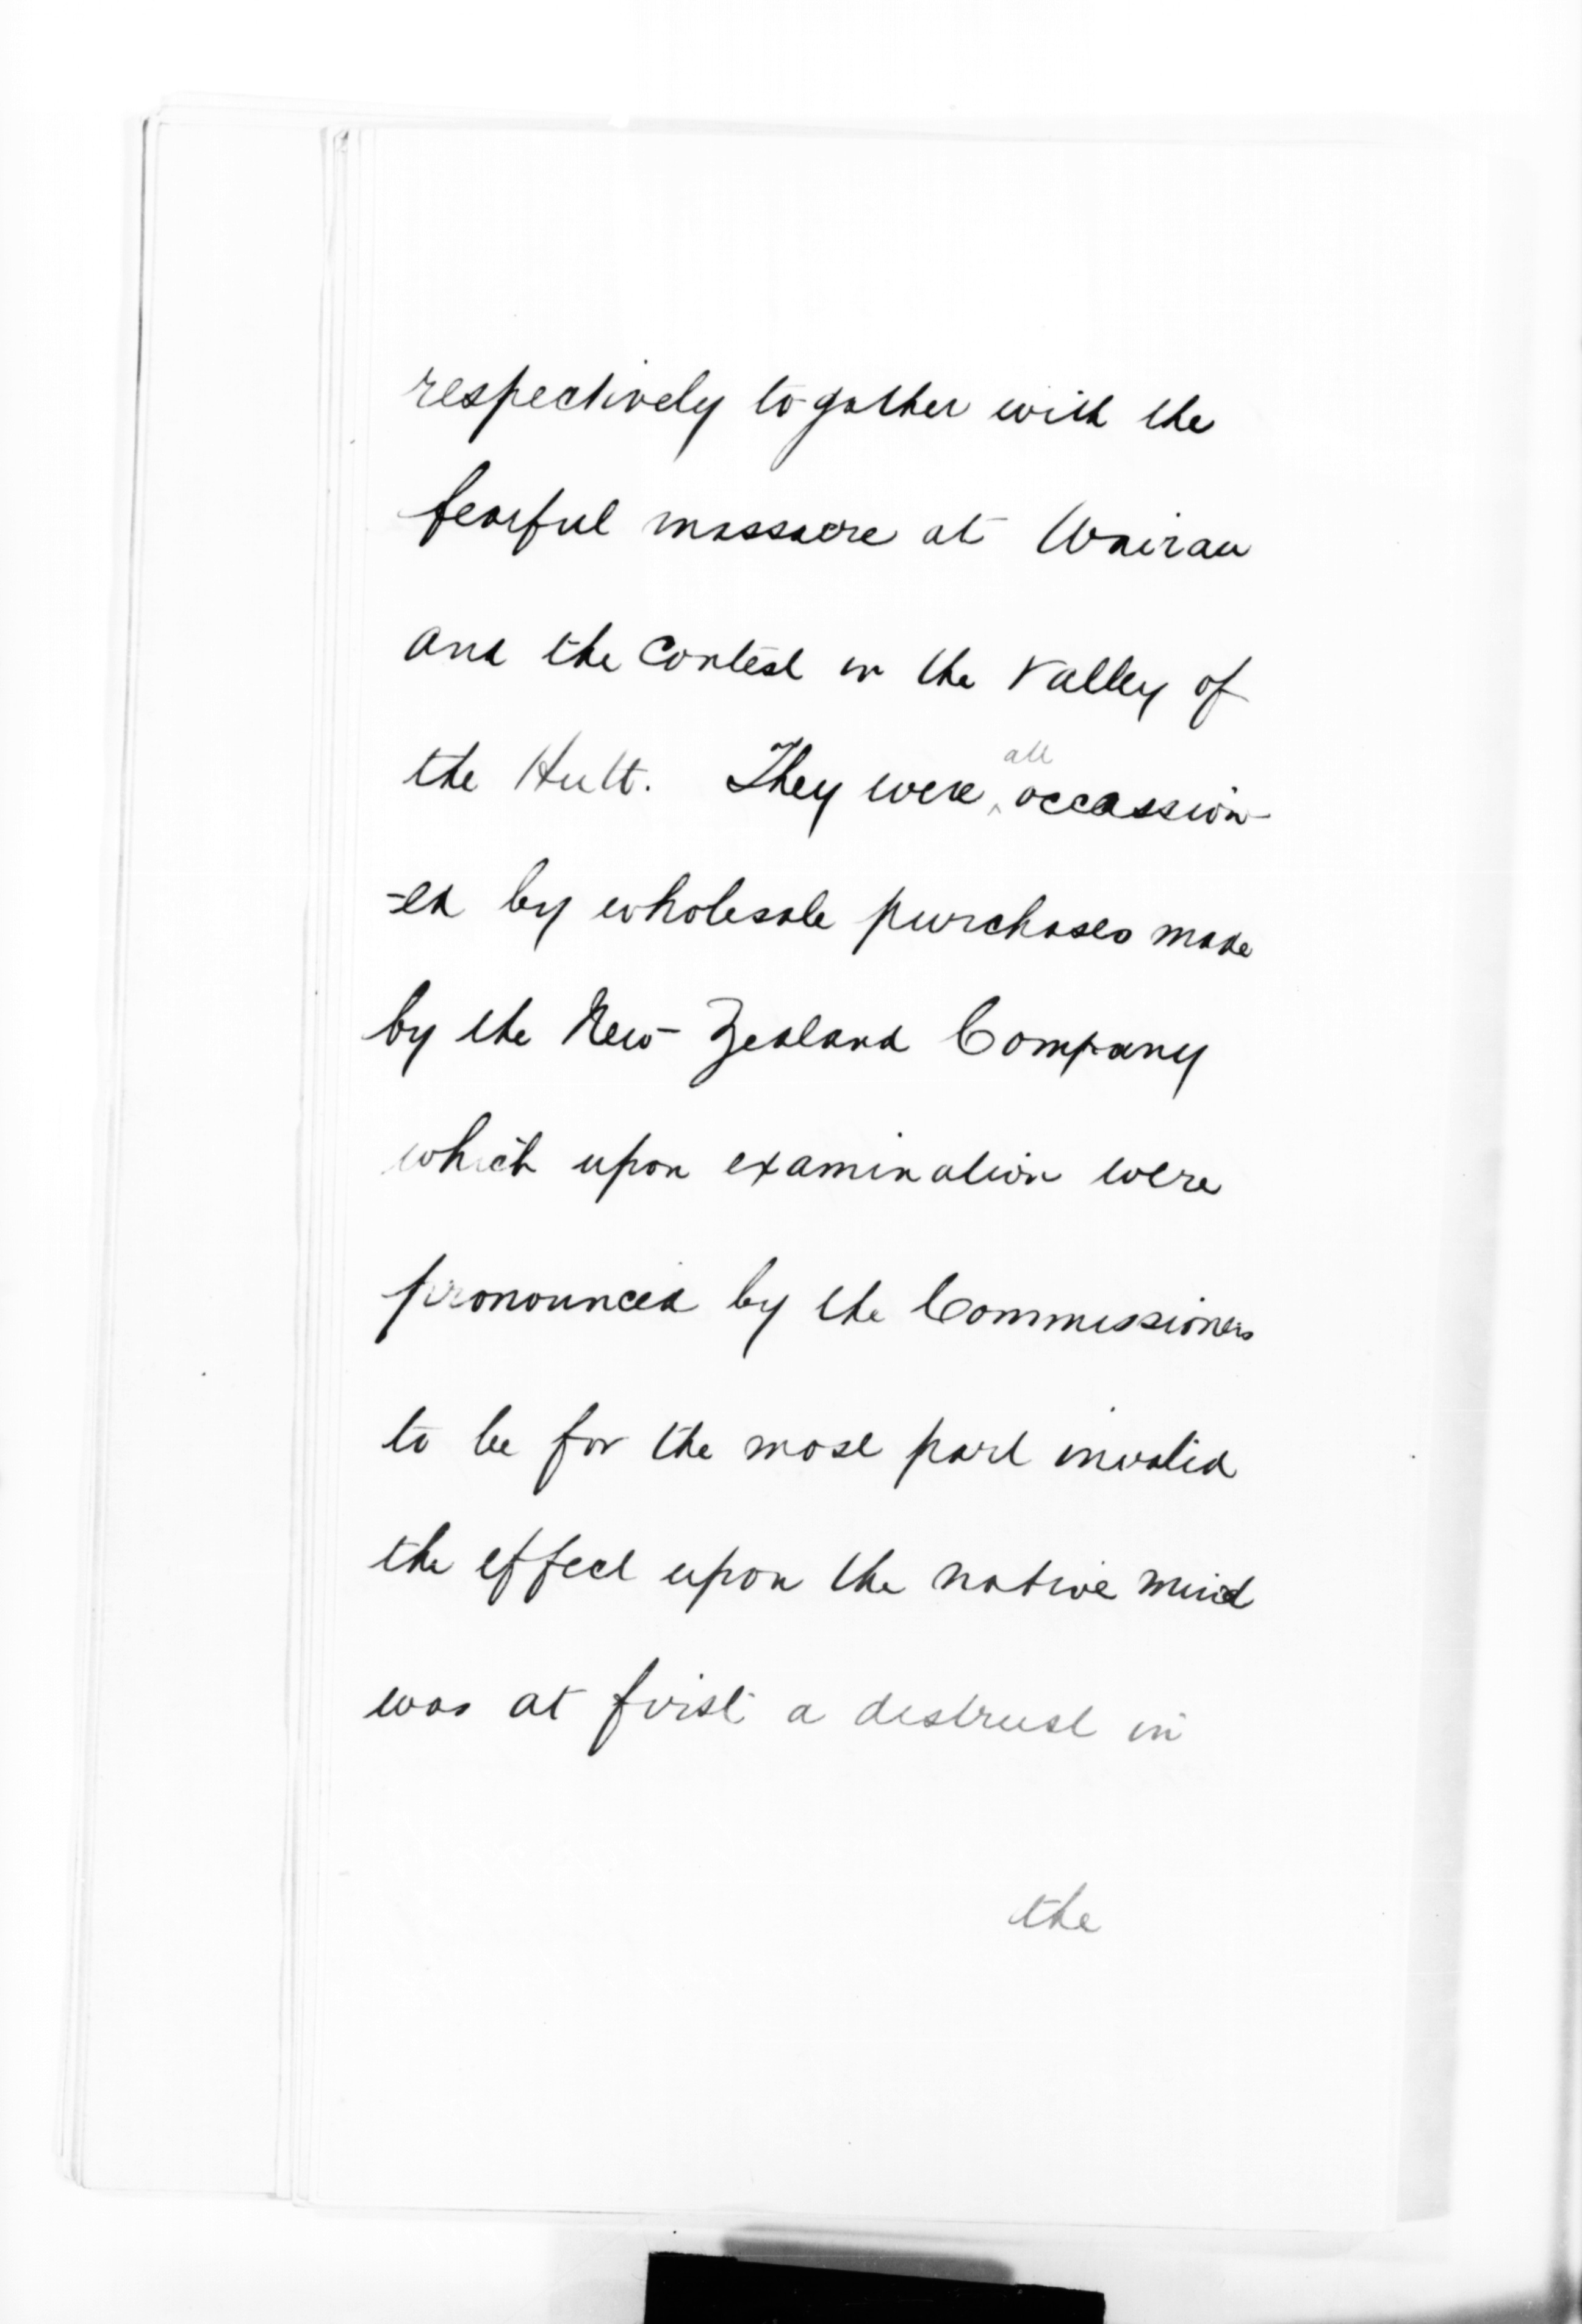 respectively together with the
fearful massacre at Wairau
and the Contest in the Valley of
the Hutt. They were ^all occassion-
-ed by wholesale purchases made
by the New Zealand Company
which upon examination were
pronounced by the Commissioners
to be for the most part invalid
the effect upon the native mind
was at first a distrust in
the